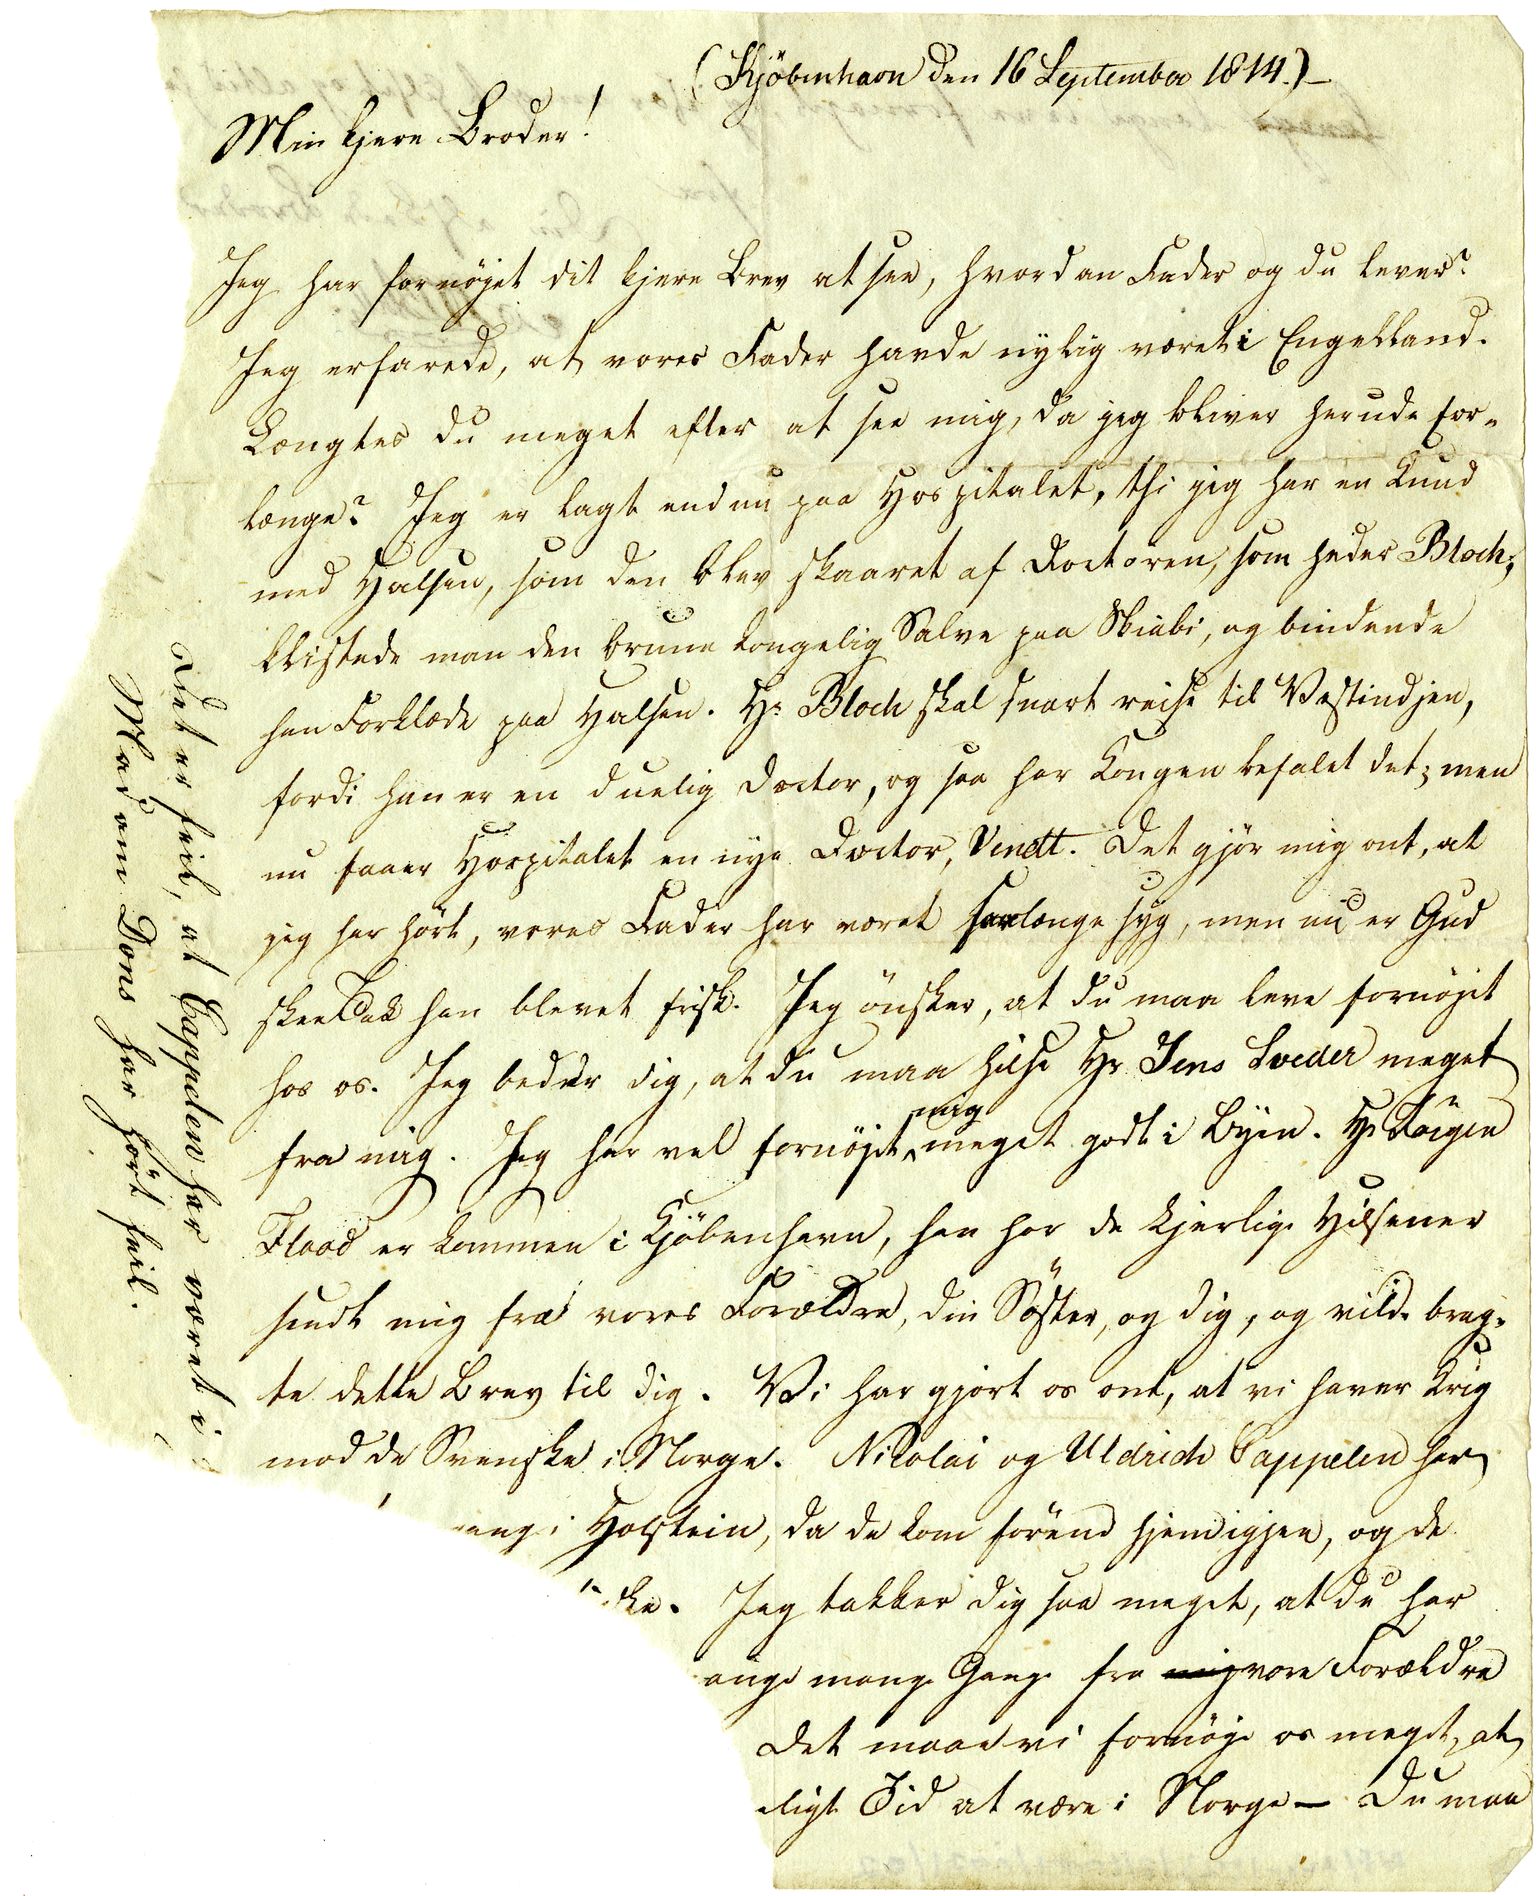 (Kjöbenhavn den 16 September 1814.)
Min kjere Broder!
Jeg har fornöjet dit kjere Brev at see, hvordan Fader og du lever?
Jeg erfarede, at vores Fader havde nylig væreti Engelland.
Længtes du meget efter at see mig, da jeg bliver herude for-
længe? Jeg er lagt endnu paa Hospitalet, thi jeg har en Knud
med Halsen, som den blev skaaret af Doctoren, som heder Bloch;
klistede man den brune Salve paa, og bindende
han Forklæde paa Halsen. Hr Bloch skal snart reise til Vestindjen,
fordi han er en duelig Doctor, og saa har Kongen befalet det; men
nu faaer Hospitalet en nye Doctor, Vendt. Det gjör mig ont, at
jeg har hört, vores Fader har været saalænge syg, men nu er Gud
skee Tak han blevet frisk. Jeg önsker, at du maa leve fornöjet
hos os. Jeg beder dig, at du maa hilse Hr Jens Lveder meget
fra mig. Jeg har vel fornöjet mig meget godt i Byen. Hr
Flood er kommen i Kjöbenhavn, han har de kjerlige Hilsener
sendt mig fra vores Forældre, din Söster, og dig, og vilde brag-
te dette Brev til dig. Vi har gjort os ont, at vi haver Krig
mod de Svenske i Norge. Nikolai og Uldrich Cappelen har
i Holstein, da de kom förend hjem igjen, og de
ske. Jeg takker dig saa meget, at du har
ange mange Gange fra mig vore Forældre
Det maae vi fornöje os meget, at
eligt Tid at være i Norge — Du maa
Det er feil, at Cappelen har været i
Madam Dons har hört feil.